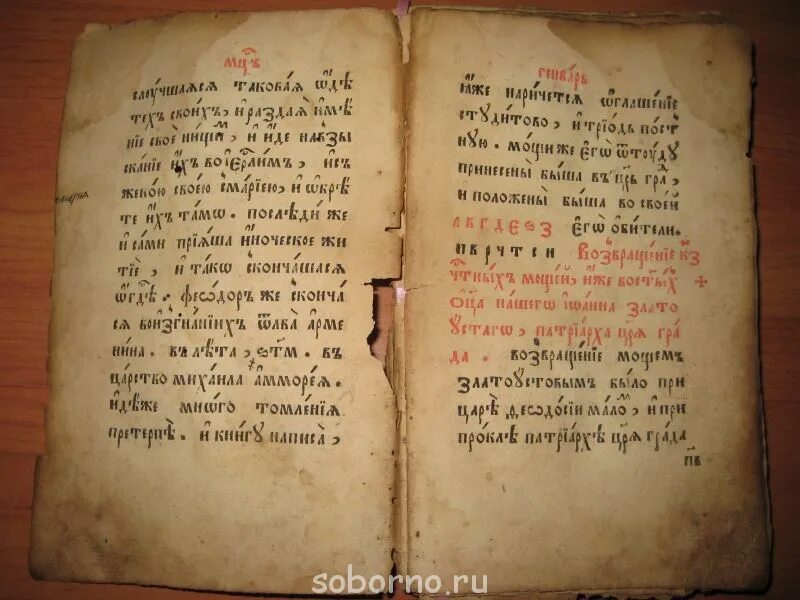 мцъ
слоучшаяся таковая ѿдѣ
тєхъ своихъ, и раздая имѣ
ніє своѐ нищи, и идє навзы
сканіє ихъ во іє҃рлимъ, исъ
жєною своєю с марією, и ѡбрѣ
тє ихъ тамѡ. послѣди жє
и сами пріяша иночєскоє жи
тіє, и такѡ скончашася
ѡгдѣ. фєѻдоръ жє сконча
ся во изгнаніихъ ѿ лва армє
нина. въ лѣта, ѕ҃тм. въ
царство михаила амморєя.
идѣжє многѡ томлєнія
прєтєрпѣ. и книгꙋ написа,
гєнварь
яжє наричєтся ѡглашєніє
стꙋдитово, и тріѡдь пост
нꙋю. мощи жє єгѡ ѿтоꙋдꙋ
принєсєны быша въ цр҃ь гра,
и положєны быша во своєй
а в г д є ѕ з єгѡ обитєли.
п в р ч т с и Возвращєніє к҃з
чтⷭ҇ныхъ мощєй, ижє во ст҃ыхъ
ѻц҃а нашєгѡ іѡанна злато
ꙋстагѡ, патріарха цр҃я гра
да. возвращєніє мощємъ
златоꙋстовымъ было при
царѣ ѳєодосіи мало, и при
проклѣ патріархѣ цр҃я града
п҃в
soborno.ru